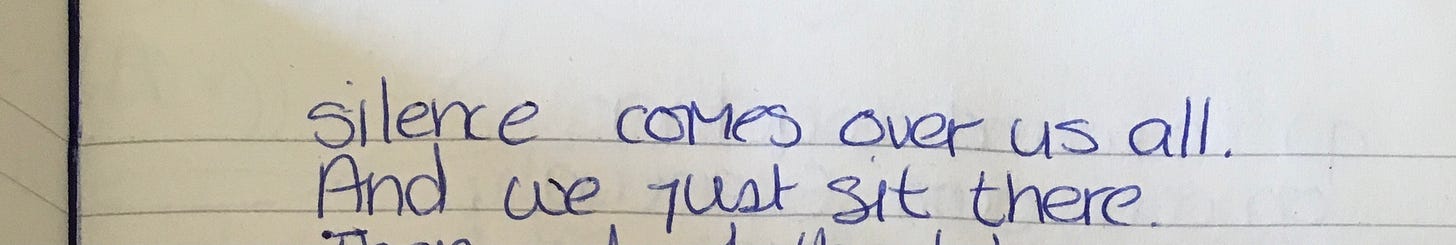 silence comes over us all.
And we just sit there.